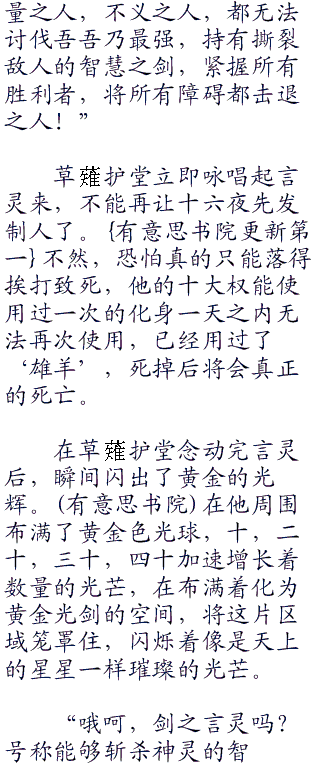 量之人，不义之人，都无法
讨伐吾吾乃最强，持有撕裂
敌人的智慧之剑，紧握所有
胜利者，将所有障碍都击退
之人！”
草薙护堂立即咏唱起言
灵来，不能再让十六夜先发
制人了。{有意思书院更新第
一}不然，恐怕真的只能落得
挨打致死，他的十大权能使
用过一次的化身一天之内无
法再次使用，已经用过了
‘雄羊’，死掉后将会真正
的死亡。
在草薙护堂念动完言灵
后，瞬间闪出了黄金的光
辉。(有意思书院)在他周围
布满了黄金色光球，十，二
十，三十，四十加速增长着
数量的光芒，在布满着化为
黄金光剑的空间，将这片区
域笼罩住，闪烁着像是天上
的星星一样璀璨的光芒。
“哦呵，剑之言灵吗？
号称能够斩杀神灵的智